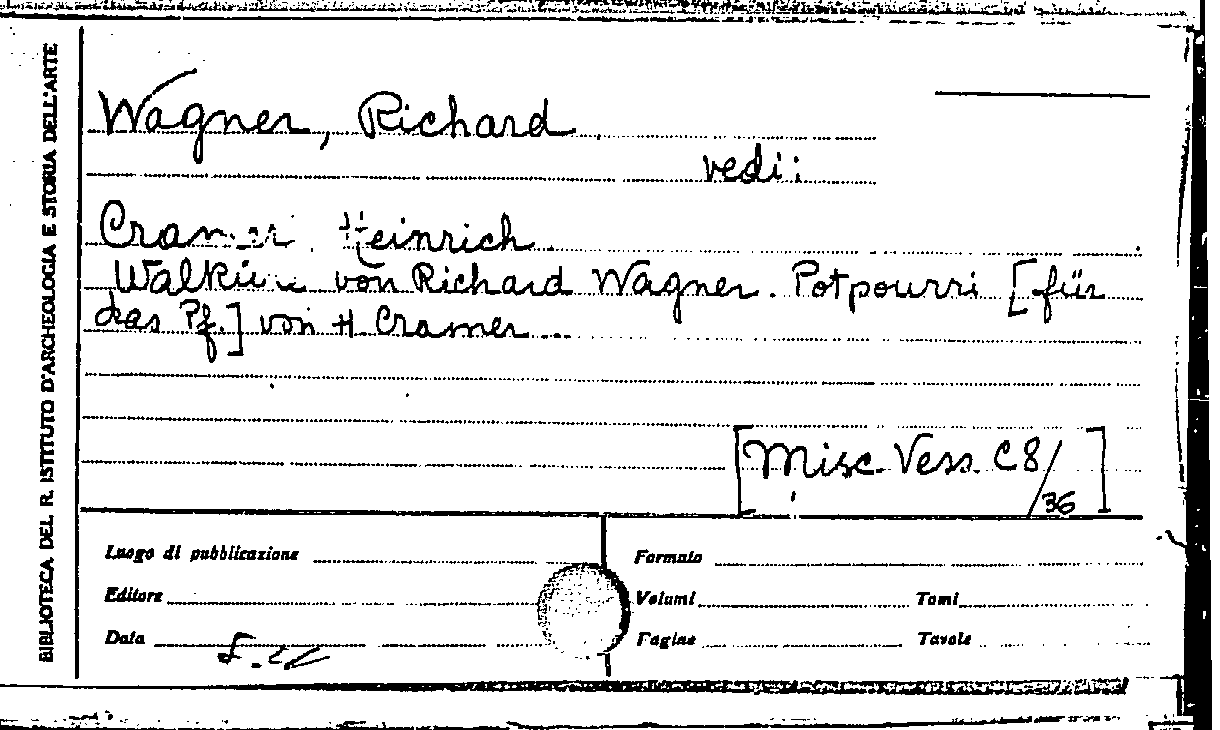 BIBLIOTECA DEL R. ISTITUTO D'ARCHEOLOGIA E STORIA DELL'ARTE
Wagner, Richard
vedi:
Cramer, Heinrich
Walküre von Richard Wagner. Potpourri [für
das Pf.] von H. Cramer ...
[Misc. Vess. C8/36]
Luogo di pubblicazione
Formato
Editore
Volumi
Tomi
Data
Pagine
Tavole